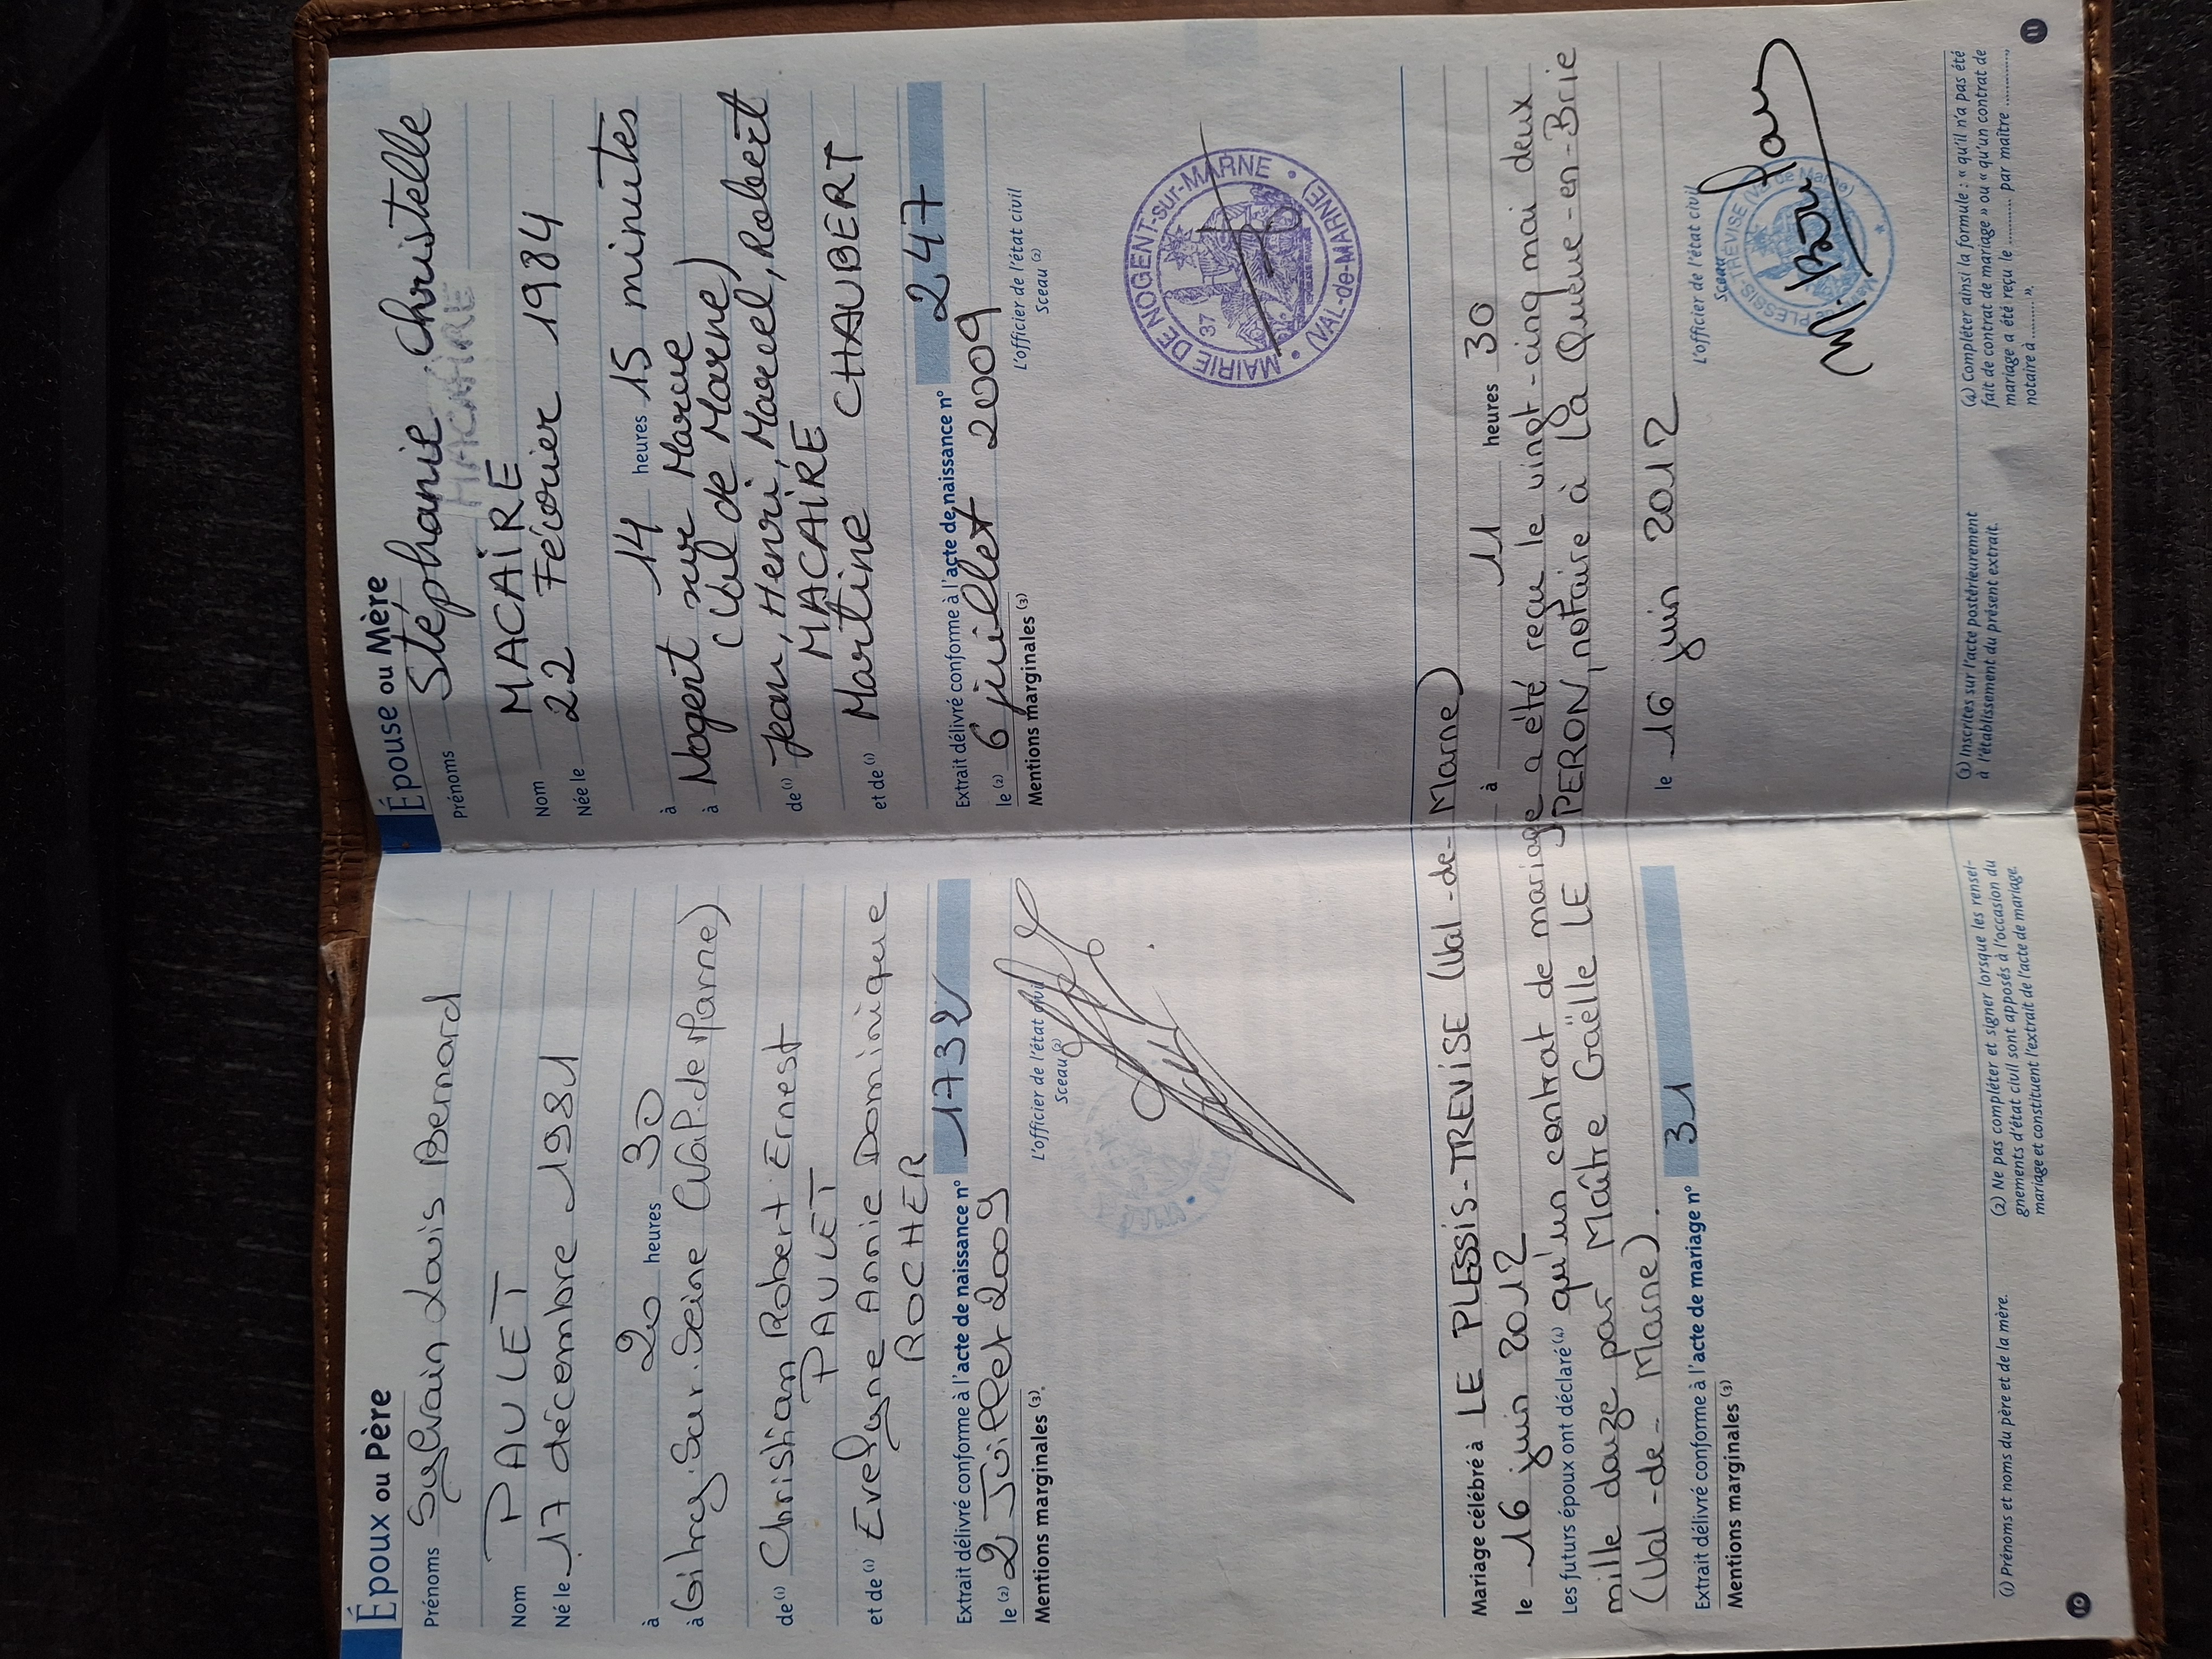 Époux ou Père
Prénoms Sylvain Louis Bernard
Nom PAULET
Né le 17 décembre 1981
à 20 heures 30
à Vitry-Sur-Seine (Val-de-Marne)
de (1) Christian Robert Ernest
PAULET
et de (1) Evelyne Annie Dominique
ROCHER
Extrait délivré conforme à l'acte de naissance n° 1732
le (2) 2 Juillet 2009
L'officier de l'état civil
Sceau (2)
Mentions marginales (3)
Épouse ou Mère
Prénoms Stéphanie, Christelle
MACAIRE
Nom MACAIRE
Née le 22 Février 1984
à 14 heures 15 minutes
à Nogent sur Marne
(Val de Marne)
de (1) Jean, Henri, Marcel, Robert
MACAIRE
et de (1) Martine CHAUBERT
Extrait délivré conforme à l'acte de naissance n° 247
le (2) 6 juillet 2009
L'officier de l'état civil
Sceau (2)
Mentions marginales (3)
MAIRIE DE NOGENT-sur-MARNE • (VAL-de-MARNE) •
37
Mariage célébré à LE PLESSIS-TREVISE (Val-de-Marne)
le 16 juin 2012 à 11 heures 30
Les futurs époux ont déclaré (4) qu'un contrat de mariage a été reçu le vingt-cinq mai deux
mille douze par Maître Gaëlle LE PERON, notaire à La Queue-en-Brie
(Val-de-Marne).
Extrait délivré conforme à l'acte de mariage n° 31
le 16 juin 2012
Mentions marginales (3)
L'officier de l'état civil
Sceau
PLESSIS-TRÉVISE (Val de Marne)
(1) Prénoms et noms du père et de la mère.
(2) Ne pas compléter et signer lorsque les rensei-
gnements d'état civil sont apposés à l'occasion du
mariage et constituent l'extrait de l'acte de mariage.
(3) Inscrites sur l'acte postérieurement
à l'établissement du présent extrait.
(4) Compléter ainsi la formule : « qu'il n'a pas été
fait de contrat de mariage » ou « qu'un contrat de
mariage a été reçu le ........... par maître ...........,
notaire à .......... ».
10
11